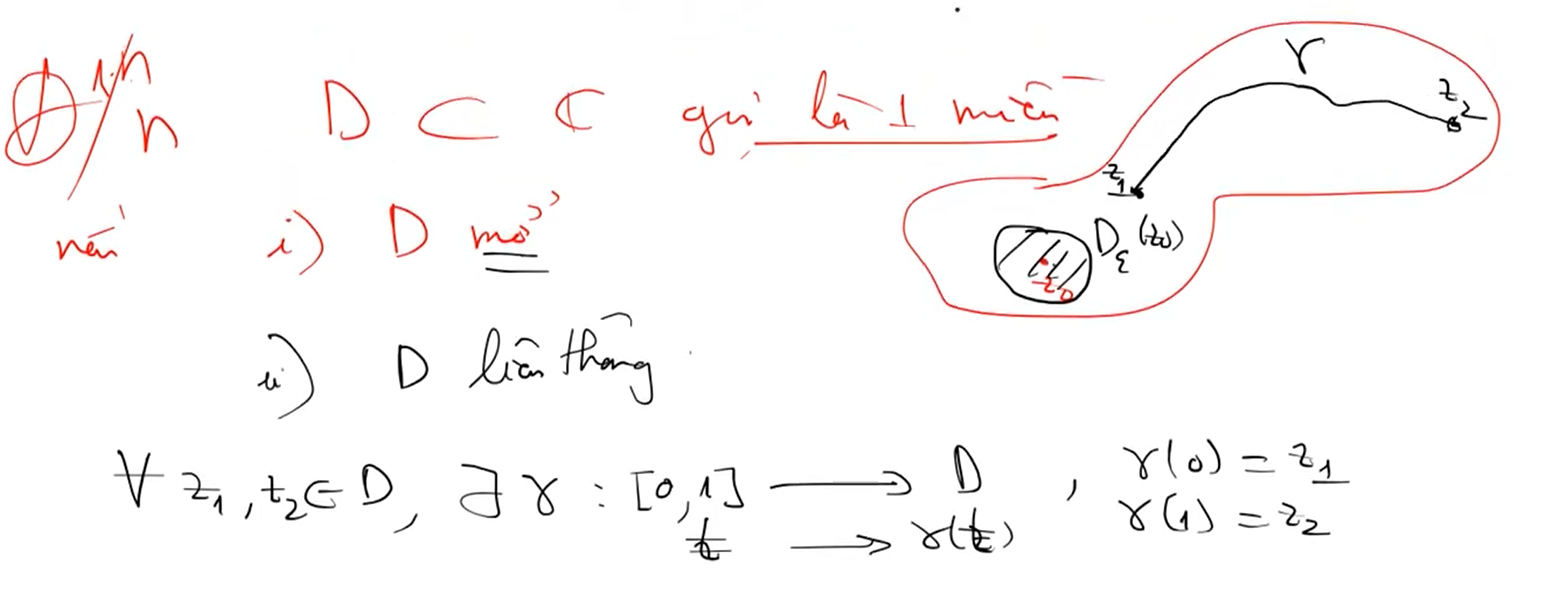 Đ/n D ⊂ ℂ gọi là 1 miền
nếu i) D mở
ii) D liên thông
∀ z₁, z₂ ∈ D, ∃ γ : [0,1] ⟶ D , γ(0) = z₁
t ⟶ γ(t) γ(1) = z₂
γ
z₂
z₁
D_ε(z₀)
z₀